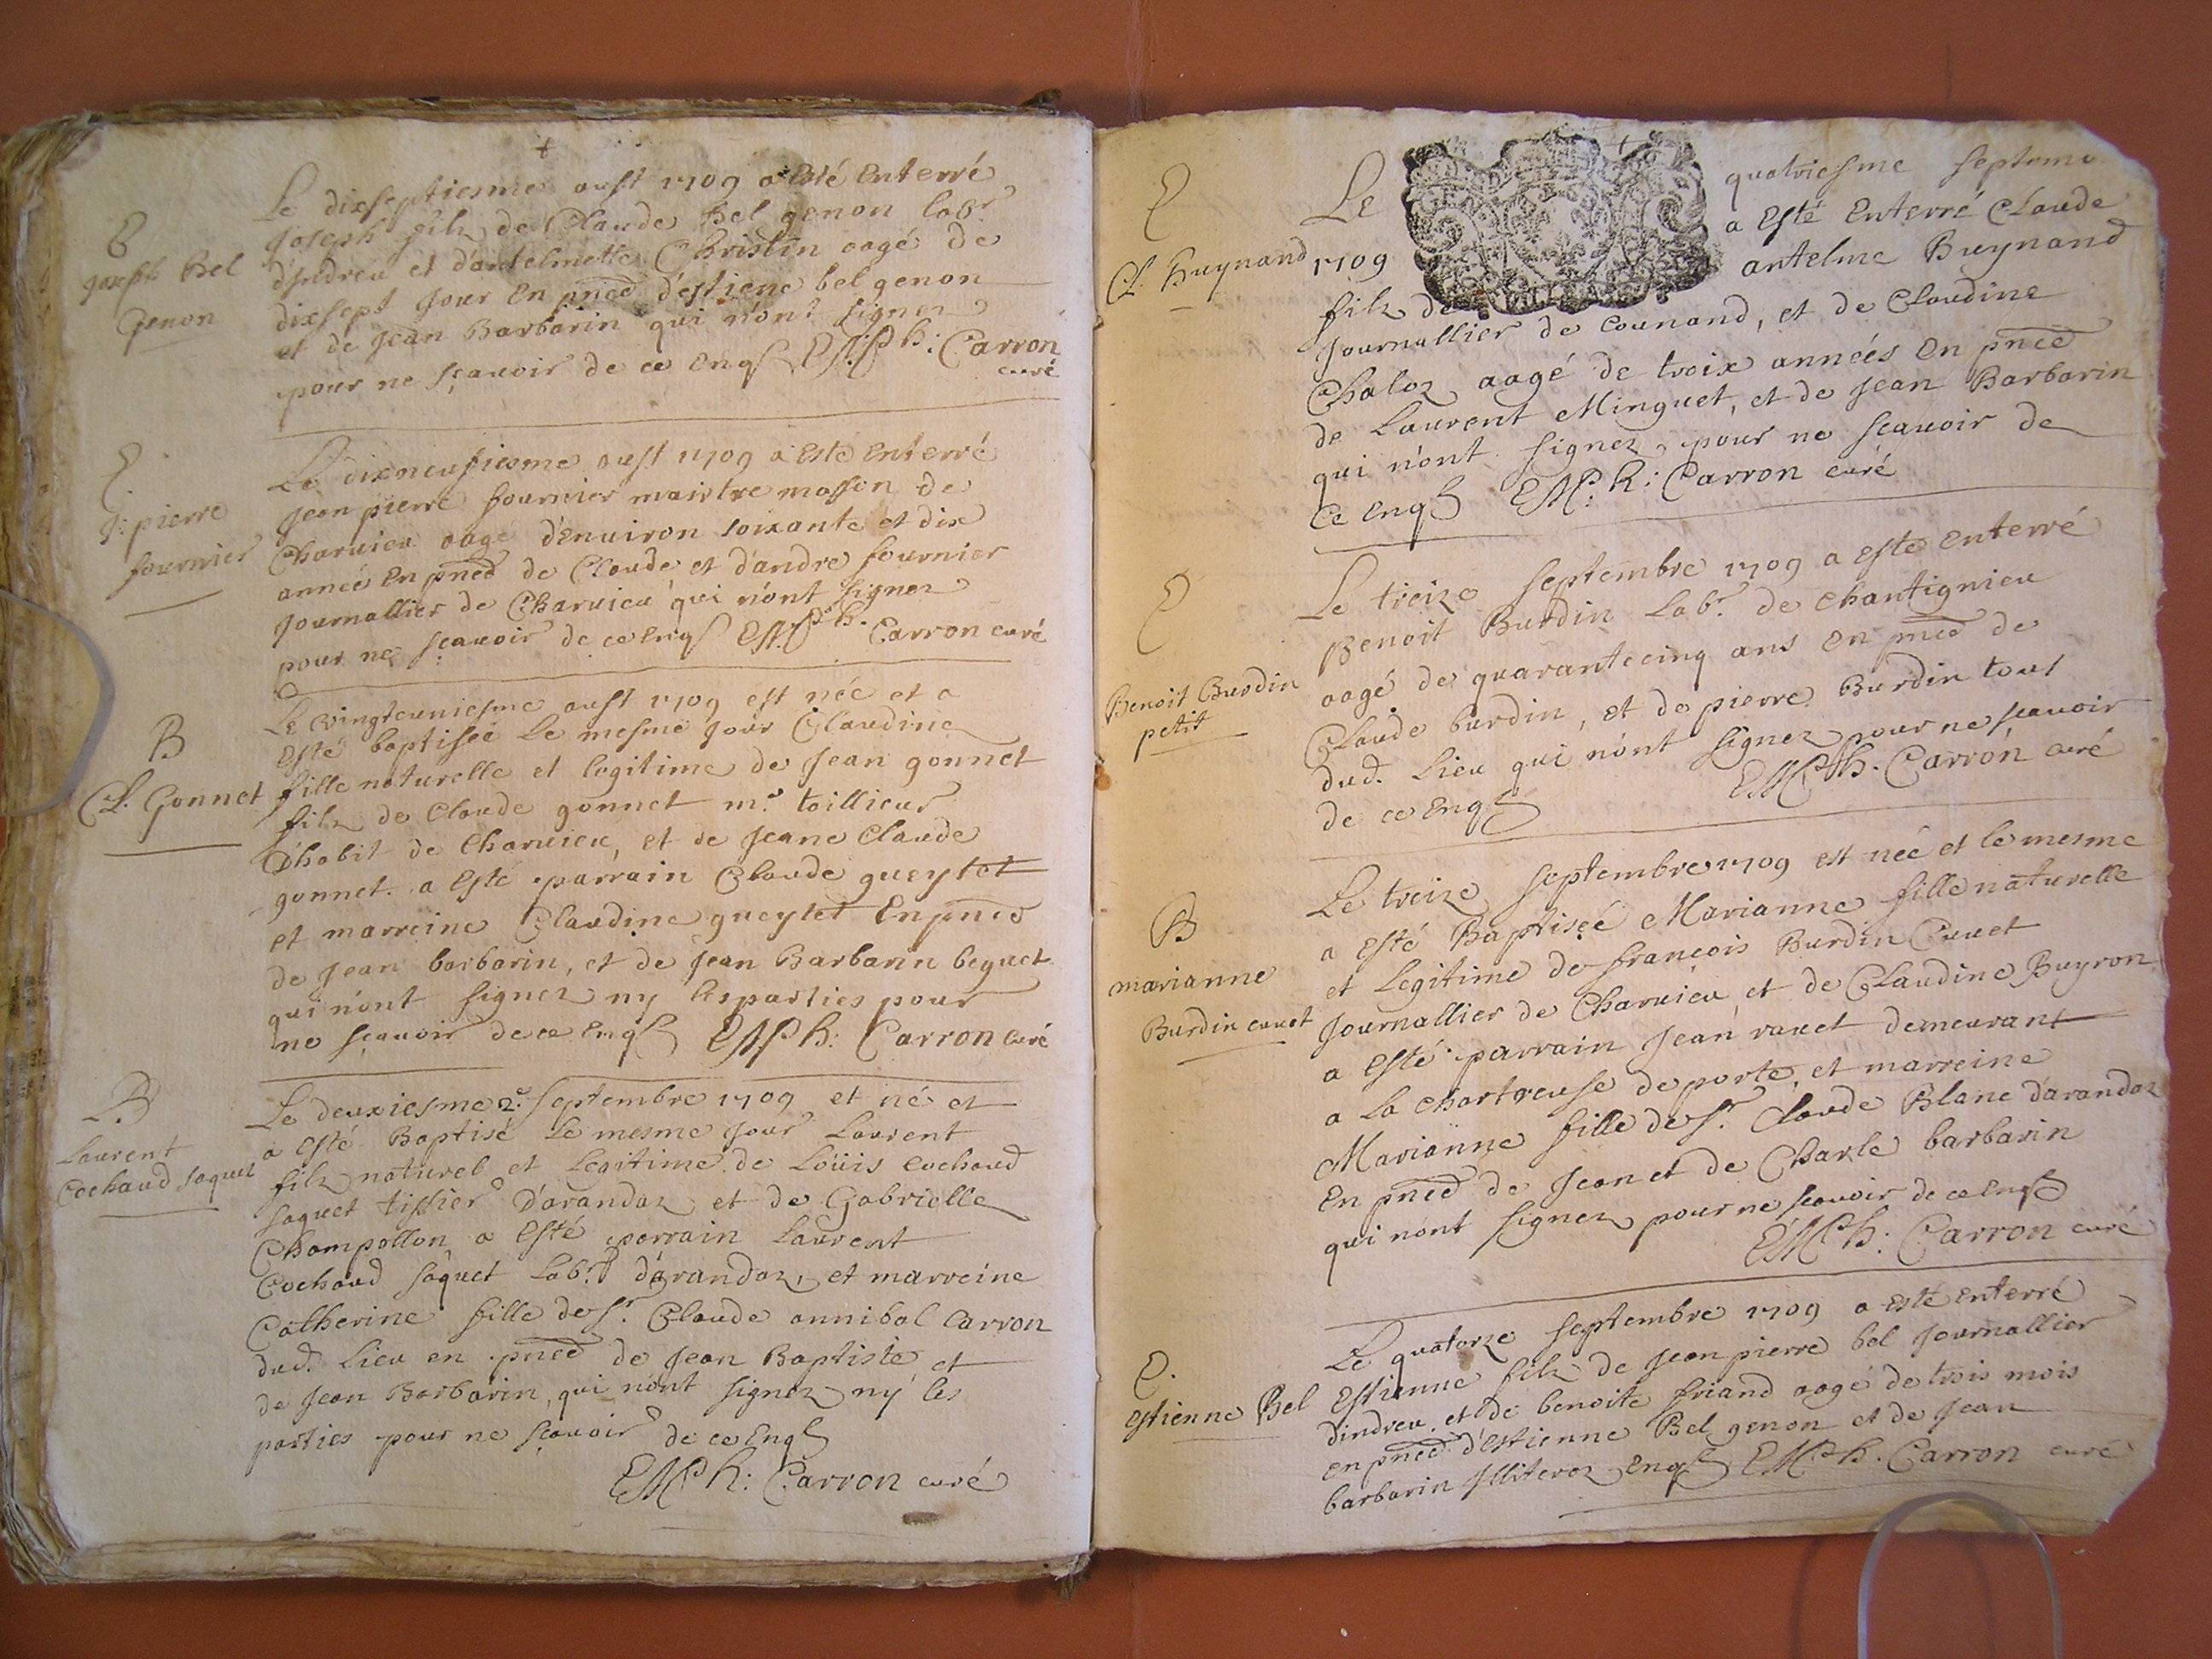 E
Joseph Bel
Genon
Le dixseptiesme aust 1709 a esté enterré
Joseph filz de Claude Bel genon labr
d'Indrieu et d'antelmette Christin aagé de
dixsept jour en pnce d'estiene bel genon
et de Jean Barbarin qui n'ont signer
pour ne sçauoir de ce enq EMPh: Carron
curé
E.
J: pierre
fournier
Le dixneufiesme aust 1709 a esté enterré
Jean pierre fournier maistre masson de
Charuieu aagé d'enuiron soixante et dix
année en pnce de Claude et d'andre fournier
Journallier de Charuieu qui n'ont signer
pour ne sçauoir de ce enq EMPh. Carron curé
B
Cl. Gonnet
Le vingteuniesme aust 1709 est née et a
esté baptisée le mesme jour Claudine
fille naturelle et legitime de Jean gonnet
filz de Claude gonnet me taillieur
d'habit de Charuieu, et de Jeane Claude
gonnet. a esté parrain Claude gueytet
et marreine Claudine gueytet en pnce
de Jean barbarin, et de Jean Barbarin beguet
qui n'ont signer ny les parties pour
ne sçauoir de ce enq EMPh: Carron curé
B
Laurent
Cochaud saquet
Le deuxiesme 2e septembre 1709 et né et
a esté Baptisé le mesme jour Laurent
filz naturel et Legitime de Loüis cochaud
saquet tissier D'arandaz et de Gabrielle
Champollon a esté parrain Laurent
Cochaud saquet labr d'arandaz, et marreine
Catherine fille de Sr. Claude annibal Carron
dud. Lieu en pnce de Jean Baptiste et
de Jean Barbarin, qui n'ont signez ny les
parties pour ne sçauoir de ce enq
EMPh: Carron curé
E
Cl. Buynand
Le quatriesme septem
1709 a esté enterré Claude
filz de antelme Buynand
Journallier de counand, et de Claudine
Chaloz aagé de troix années en pnce
de Laurent Minguet, et de Jean Barbarin
qui n'ont signez pour ne scauoir de
ce enq EMPh: Carron curé
E
Benoit Burdin
petit
Le treize septembre 1709 a esté enterré
Benoit Burdin Labr. de Chantignieu
aagé de quarantecinq ans en pnce de
Claude burdin, et de pierre Burdin tous
dud. Lieu qui n'ont signez pour ne scauoir
de ce enq EMPh. Carron curé
B
marianne
Burdin cuuet
Le treize septembre 1709 est née et le mesme
a esté Baptisée Marianne fille naturelle
et Legitime de françois Burdin Cuuet
Journallier de Charuieu et de Claudine Buyron
a esté parrain Jean rauet demeurant
a La Chartreuse de porte, et marreine
Marianne fille de Sr. Claude Blanc d'arandaz
en pnce de Jean et de Charle barbarin
qui nont signez pour ne scauoir de ce enq
EMPh: Carron curé
E.
estienne Bel
Le quatorze septembre 1709 a esté enterré
Estienne filz de Jean pierre bel Journallier
dindreu et de benoite friand aagé de trois mois
en pnce d'Estienne Bel genon et de Jean
barbarin Illiterez enq EMPh. Carron curé